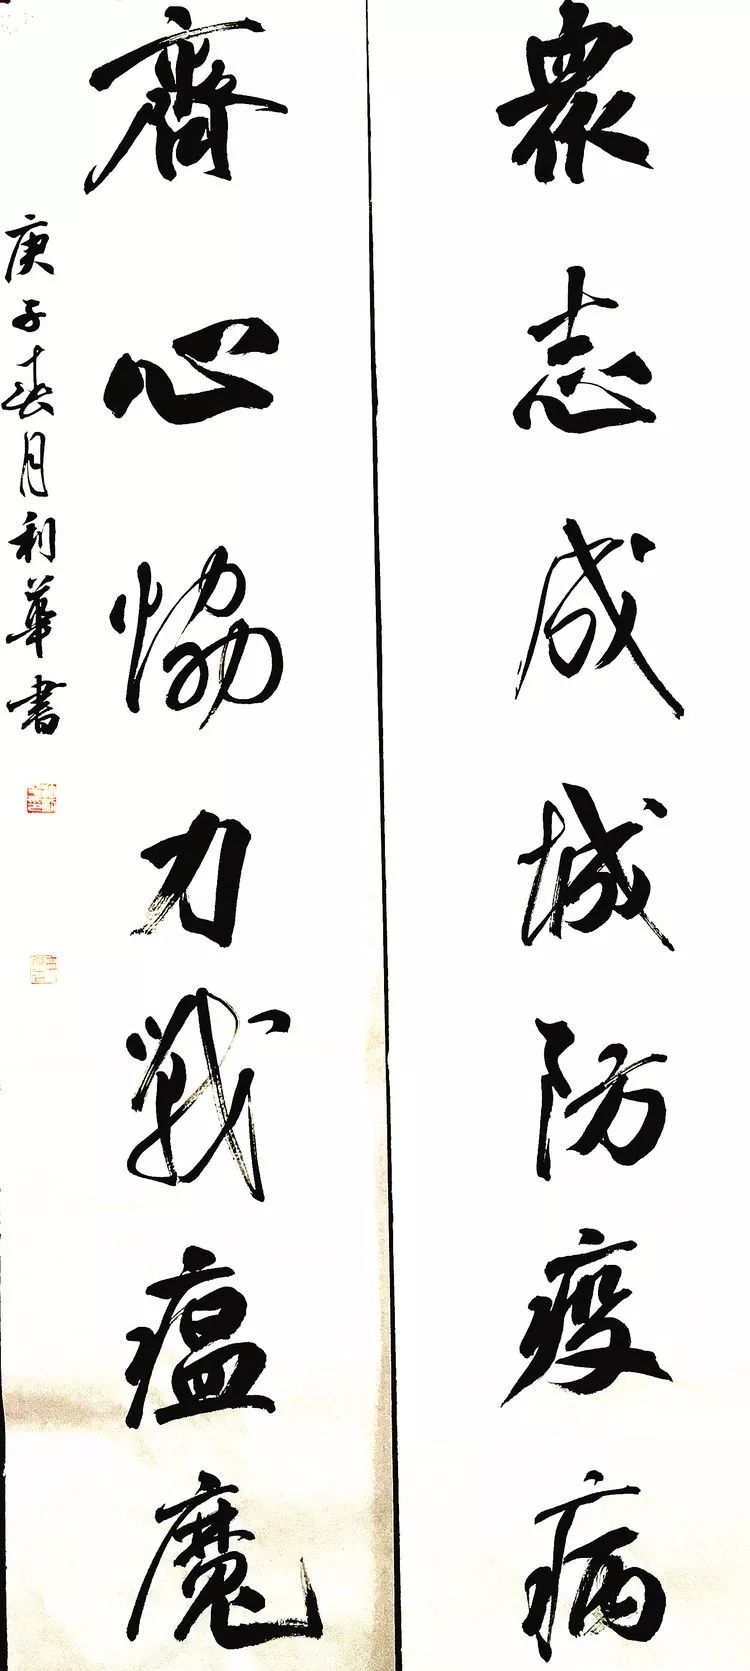 眾志成城防疫病
齊心恊力戰瘟魔
庚子春月利華書